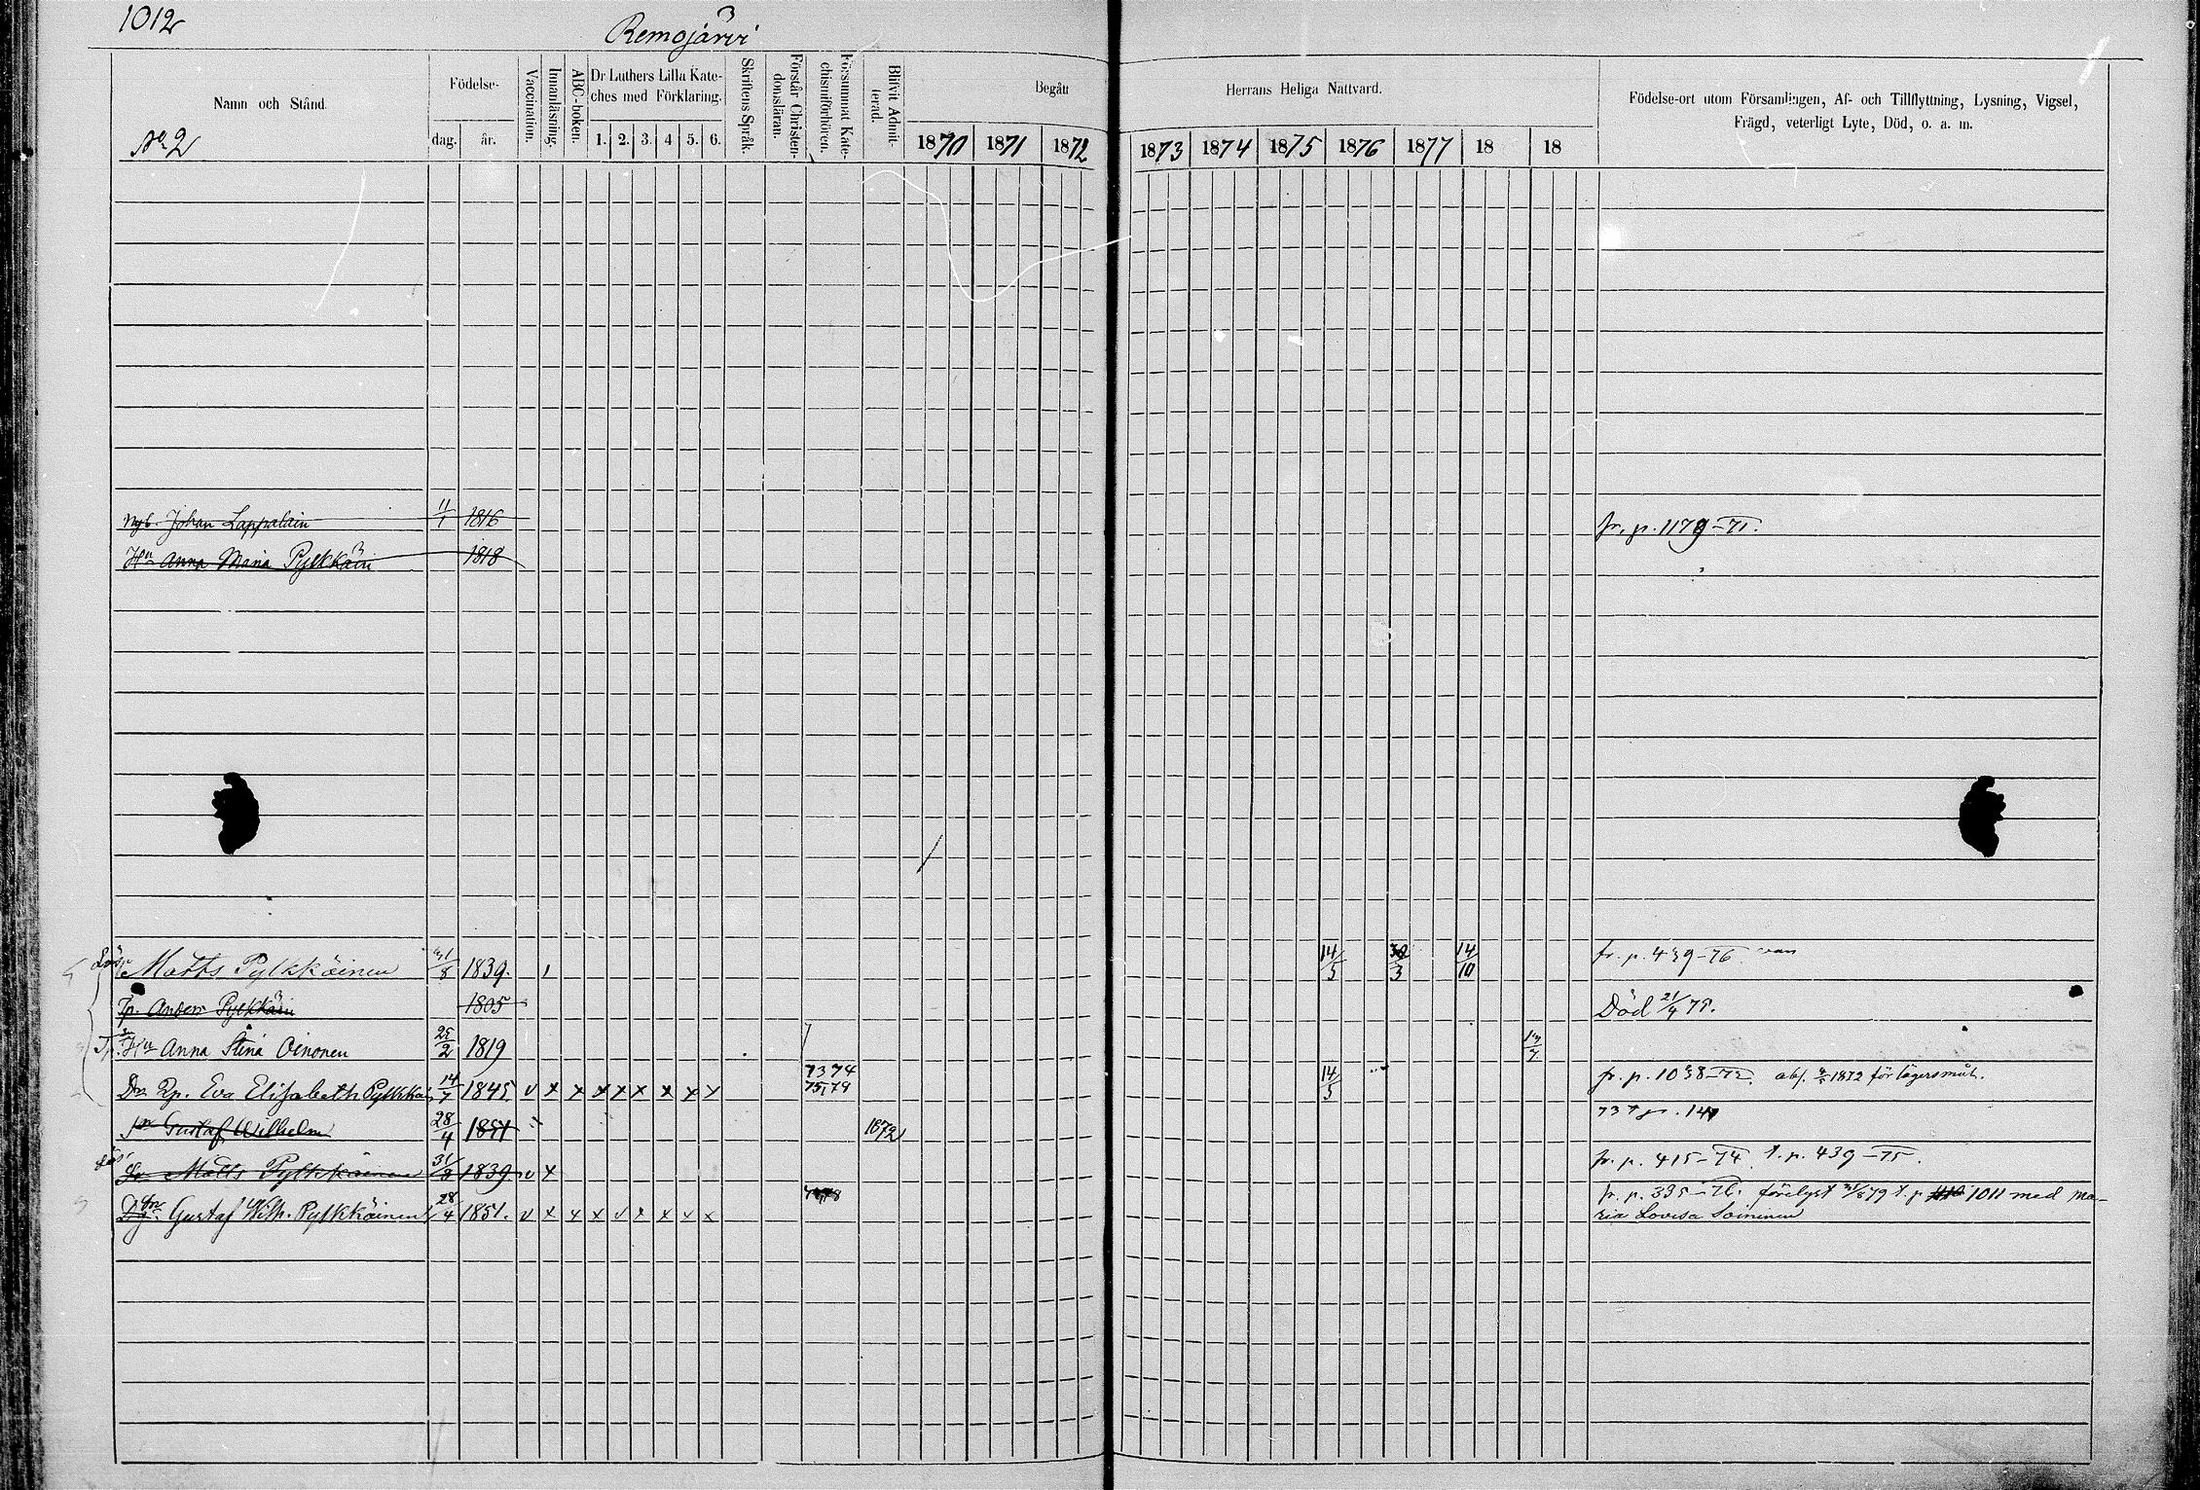 1012
Remojärvi
Namn och Stånd.
Födelse-
dag.
år.
Vaccination.
Innanläsning.
ABC-boken.
Dr Luthers Lilla Kate-
ches med Förklaring.
1. 2. 3. 4 5. 6.
Skriftens Språk.
Förstår Christen-
domsläran.
Försummat Kate-
chismiförhören.
Blifvit Admit-
terad.
Begått
Herrans Heliga Nattvard.
Födelse-ort utom Församlingen, Af- och Tillflyttning, Lysning, Vigsel,
Frägd, veterligt Lyte, Död, o. a. m.
No 2
1870 1871 1872 1873 1874 1875 1876 1877 18 18
Johan Lappalain 11/1 1816 fr. p. 1179-71.
Hu Anna Maria Pylkkäin 1818
Matts Pylkkäinen 1839. 14/5 3 14/10 fr. p. 439-76.
Anders Pylkkäin 1805 Död 21/4 75.
Hu Anna Stina Oinonen 25/2 1819
Dr. Eva Elisabeth Pylkkä 14/7 1845 v x x x x x x x x 7374 14/5 fr. p. 1038-72. 1872 för lägersmål.
Gustaf Wilhelm 28/4 1851 1872
Matts Pylkkäinen 31/8 1839. v x fr. p. 415-74. t. p. 439-75.
Gustaf Wilh. Pylkkäinen 28/4 1851. v x x x v x x x x fr. p. 395-76. förelyst 79 t. p. 1011 med Ma-
ria Lovisa Soininen